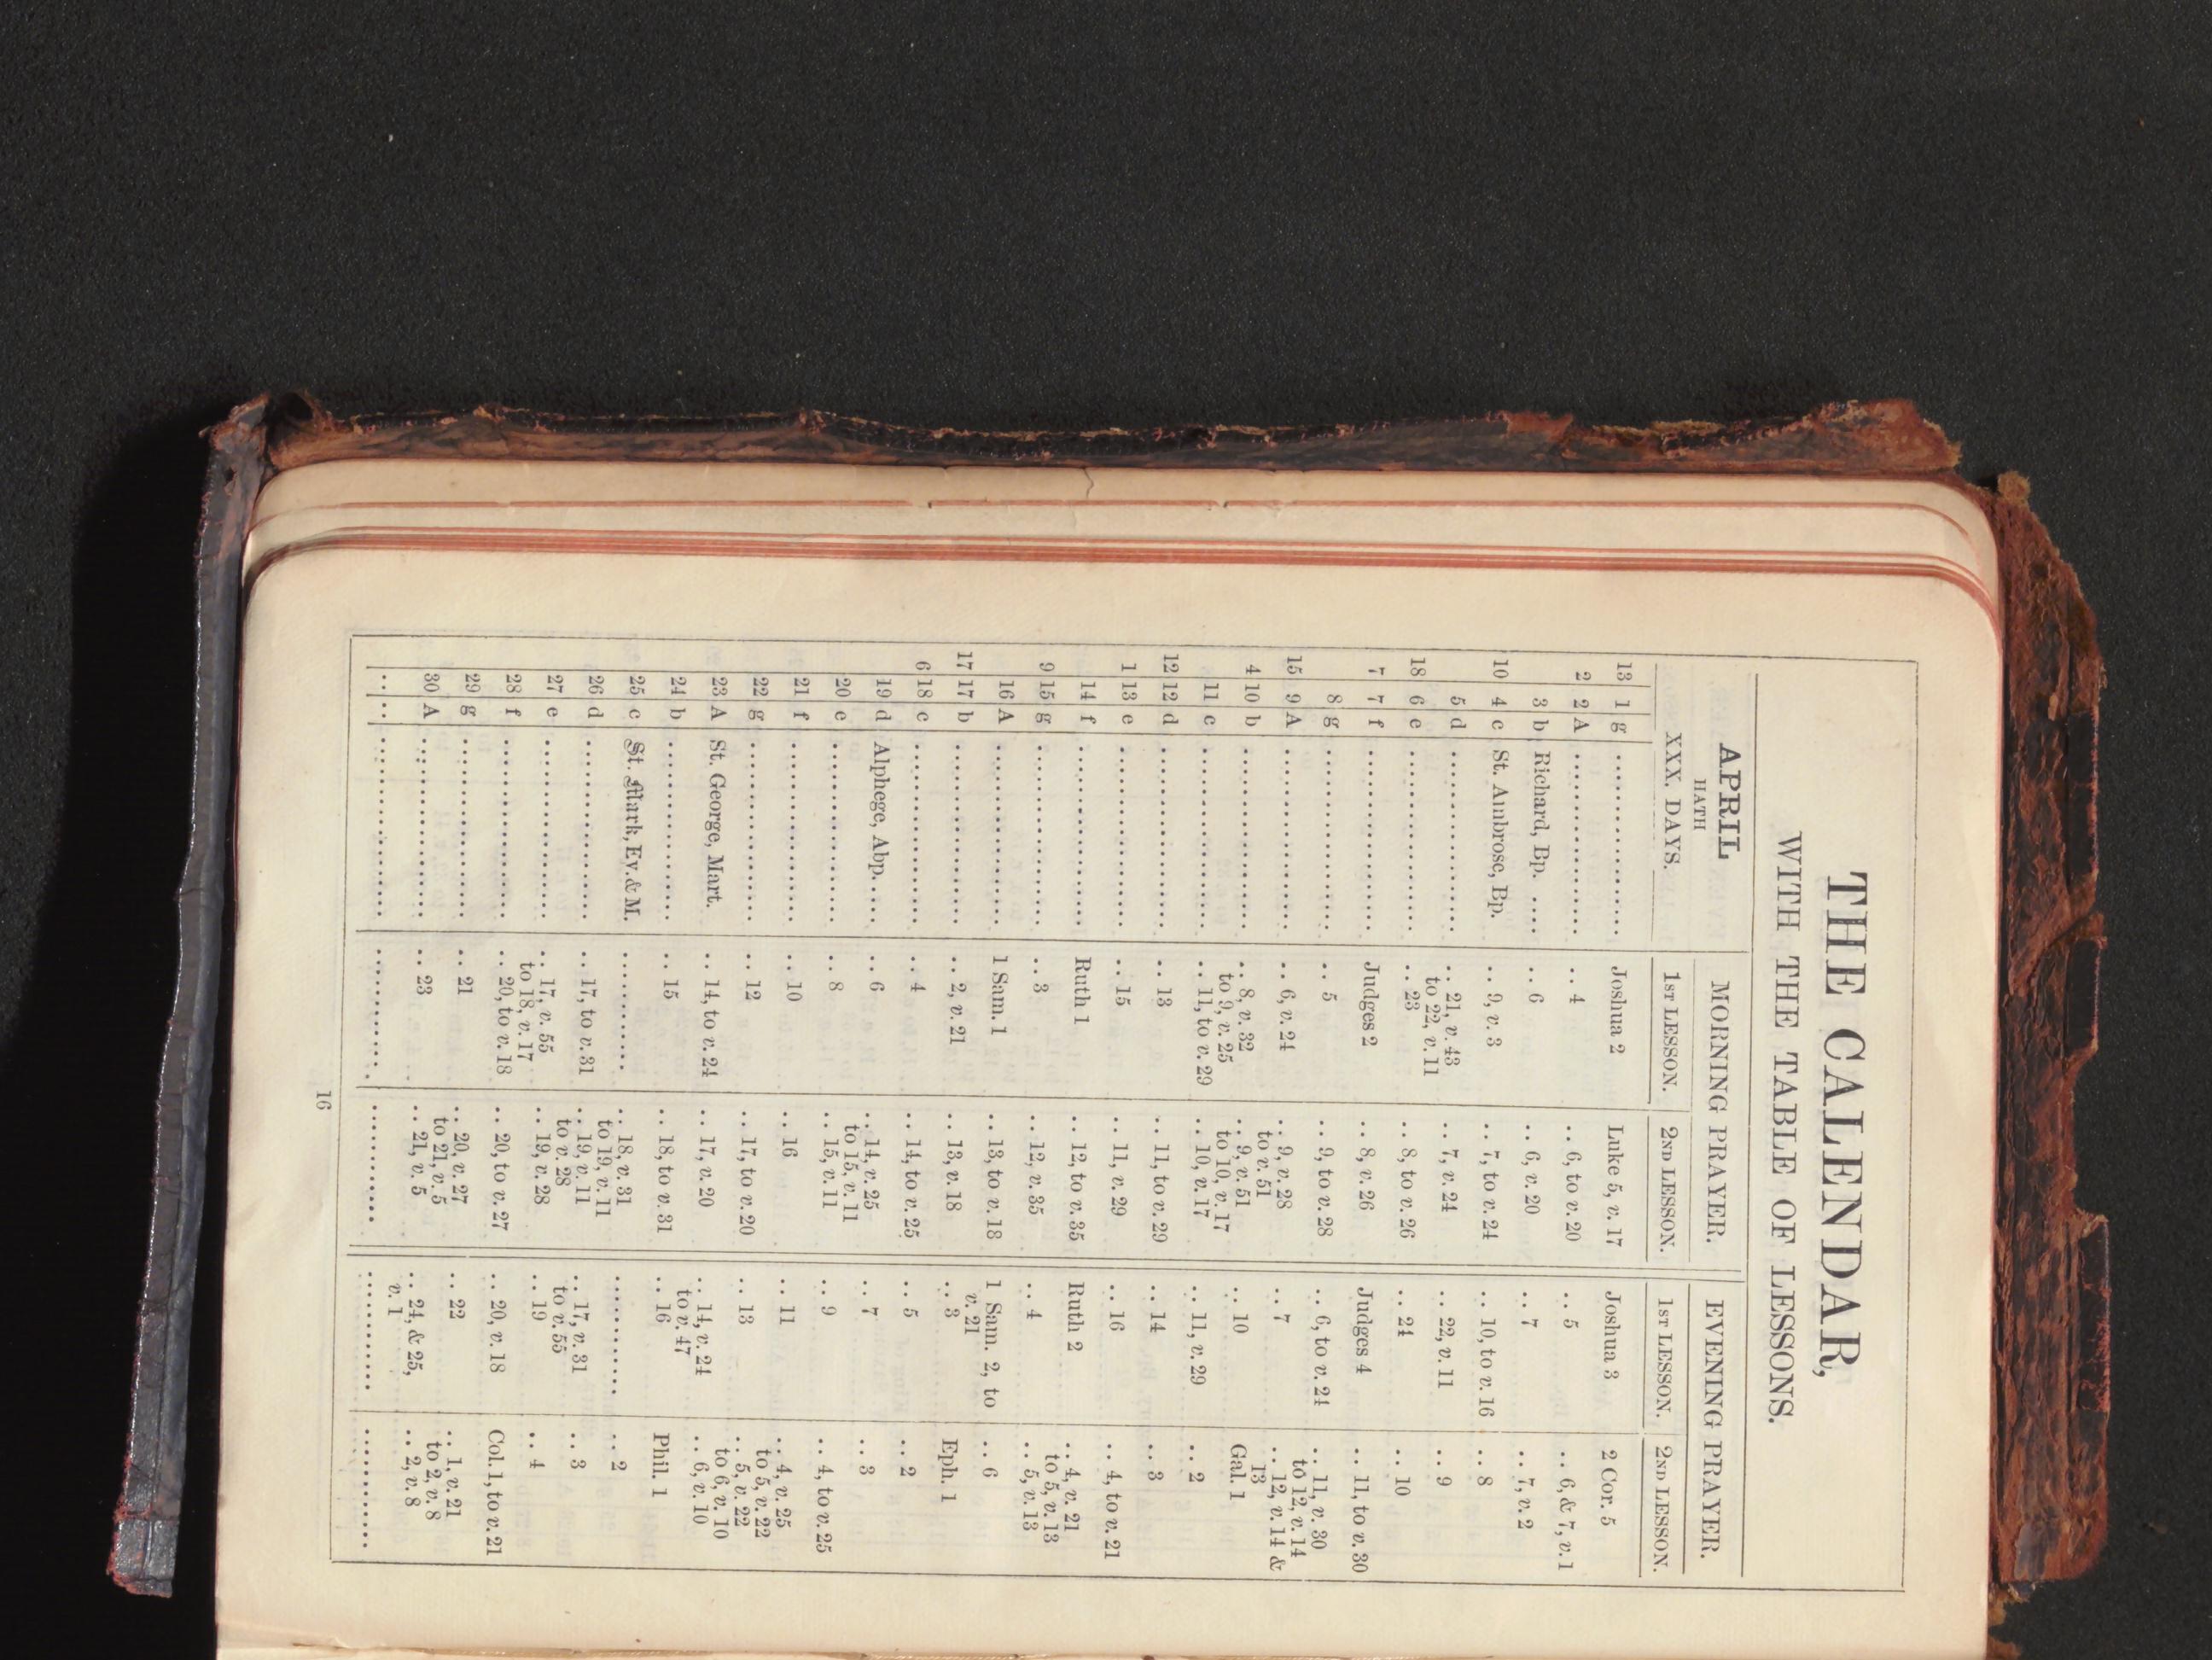 THE CALENDAR,
WITH THE TABLE OF LESSONS.
APRIL MORNING PRAYER. EVENING PRAYER.
HATH
XXX. DAYS. 1ST LESSON. 2ND LESSON. 1ST LESSON. 2ND LESSON.
13 1 g ................ Joshua 2 Luke 5, v. 17 Joshua 3 2 Cor. 5
2 2 A ................ .. 4 .. 6, to v. 20 .. 5 .. 6, & 7, v. 1
3 b Richard, Bp. .... .. 6 .. 6, v. 20 .. 7 .. 7, v. 2
10 4 c St. Ambrose, Bp. .. 9, v. 3 .. 7, to v. 24 .. 10, to v. 16 .. 8
5 d ................ .. 21, v. 43 .. 7, v. 24 .. 22, v. 11 .. 9
to 22, v. 11
18 6 e ................ .. 23 .. 8, to v. 26 .. 24 .. 10
7 7 f ................ Judges 2 .. 8, v. 26 Judges 4 .. 11, to v. 30
8 g ................ .. 5 .. 9, to v. 28 .. 6, to v. 24 .. 11, v. 30
to 12, v. 14
15 9 A ................ .. 6, v. 24 .. 9, v. 28 .. 7 .. 12, v. 14 &
to v. 51 13
4 10 b ................ .. 8, v. 32 .. 9, v. 51 .. 10 Gal. 1
to 9, v. 25 to 10, v. 17
11 c ................ .. 11, to v. 29 .. 10, v. 17 .. 11, v. 29 .. 2
12 12 d ................ .. 13 .. 11, to v. 29 .. 14 .. 3
1 13 e ................ .. 15 .. 11, v. 29 .. 16 .. 4, to v. 21
14 f ................ Ruth 1 .. 12, to v. 35 Ruth 2 .. 4, v. 21
to 5, v. 13
9 15 g ................ .. 3 .. 12, v. 35 .. 4 .. 5, v. 13
16 A ................ 1 Sam. 1 .. 13, to v. 18 1 Sam. 2, to .. 6
v. 21
17 17 b ................ .. 2, v. 21 .. 13, v. 18 .. 3 Eph. 1
6 18 c ................ .. 4 .. 14, to v. 25 .. 5 .. 2
19 d Alphege, Abp. .... .. 6 .. 14, v. 25 .. 7 .. 3
to 15, v. 11
20 e ................ .. 8 .. 15, v. 11 .. 9 .. 4, to v. 25
21 f ................ .. 10 .. 16 .. 11 .. 4, v. 25
to 5, v. 22
22 g ................ .. 12 .. 17, to v. 20 .. 13 .. 5, v. 22
to 6, v. 10
23 A St. George, Mart. .. 14, to v. 24 .. 17, v. 20 .. 14, v. 24 .. 6, v. 10
to v. 47
24 b ................ .. 15 .. 18, to v. 31 .. 16 Phil. 1
25 c St. Mark, Ev. & M. ............ .. 18, v. 31 ............ .. 2
to 19, v. 11
26 d ................ .. 17, to v. 31 .. 19, v. 11 .. 17, v. 31 .. 3
to v. 28 to v. 55
27 e ................ .. 17, v. 55 .. 19, v. 28 .. 19 .. 4
to 18, v. 17
28 f ................ .. 20, to v. 18 .. 20, to v. 27 .. 20, v. 18 Col. 1, to v. 21
29 g ................ .. 21 .. 20, v. 27 .. 22 .. 1, v. 21
to 21, v. 5 to 2, v. 8
30 A ................ .. 23 .. 21, v. 5 .. 24, & 25, .. 2, v. 8
v. 1
.. .. ................ ............ ............ ............ ............
16